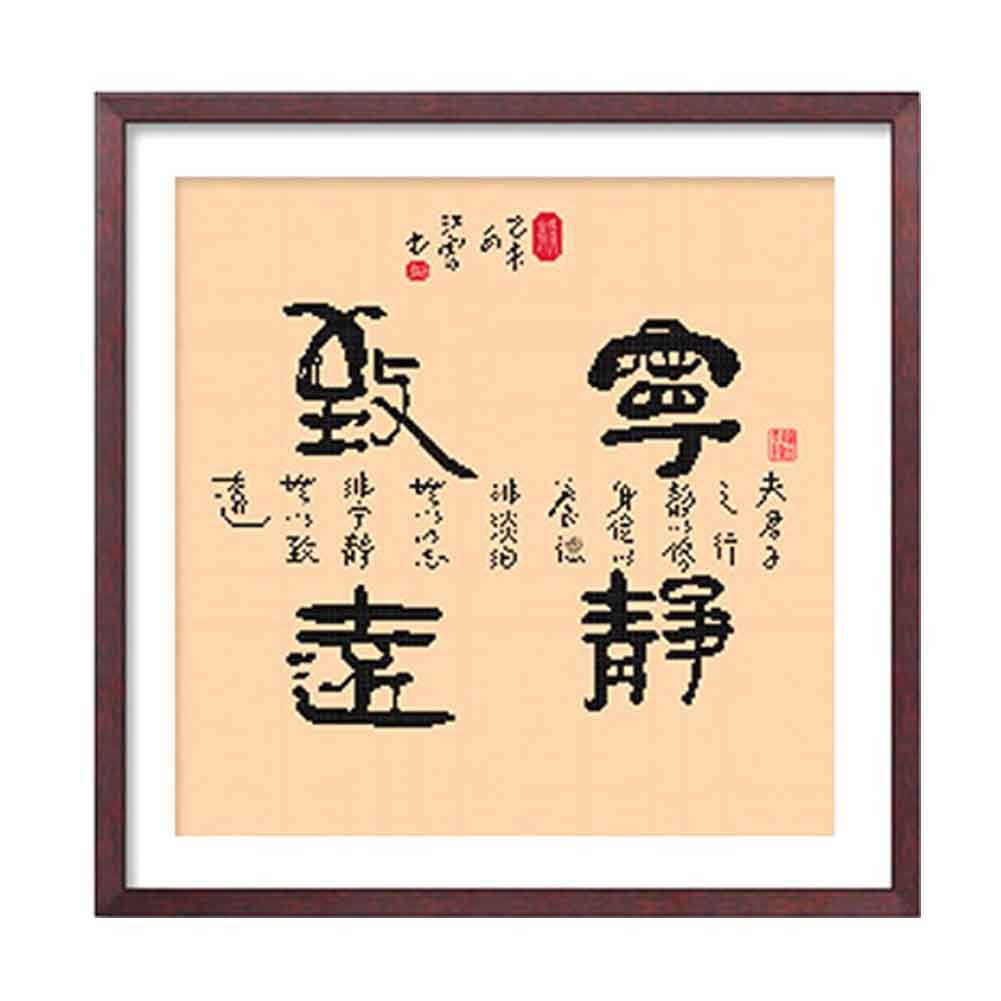 寧靜
致遠
夫君子
之行
靜以修
身儉以
養德
非淡泊
無以明志
非宁靜
無以致
遠